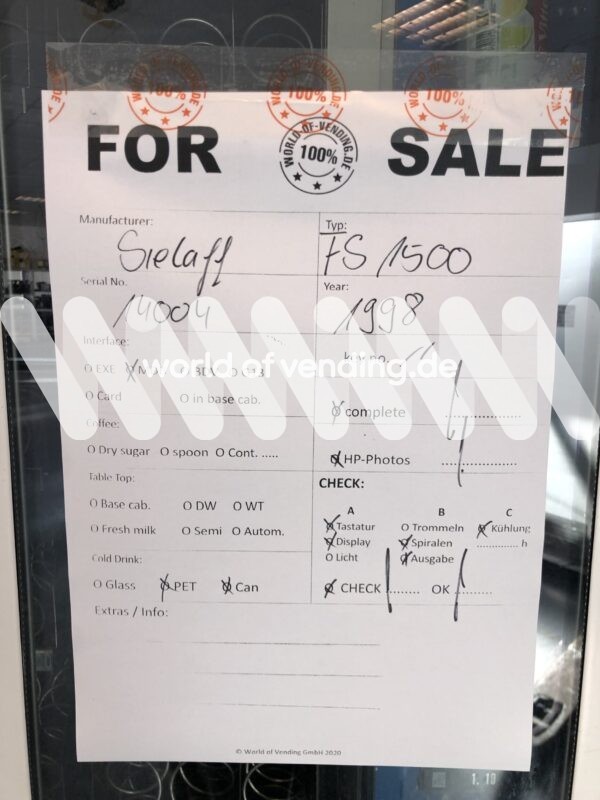 100% 100% 100%
FOR WORLD-OF-VENDING.DE 100% SALE
Manufacturer: Typ:
Sielaff FS 1500
Serial No. Year:
14004 1998
Interface:
O EXE
world of vending.de
O Card O in base cab.
O complete ..............
Coffee:
O Dry sugar O spoon O Cont. .....
O HP-Photos ..............
Table Top: CHECK:
A B C
O Base cab. O DW O WT
O Tastatur O Trommeln O Kühlung
O Fresh milk O Semi O Autom.
O Display O Spiralen .............. h
O Licht O Ausgabe
Cold Drink:
O Glass O PET O Can
O CHECK ......... OK ..........
Extras / Info:
© World of Vending GmbH 2020
1. 10